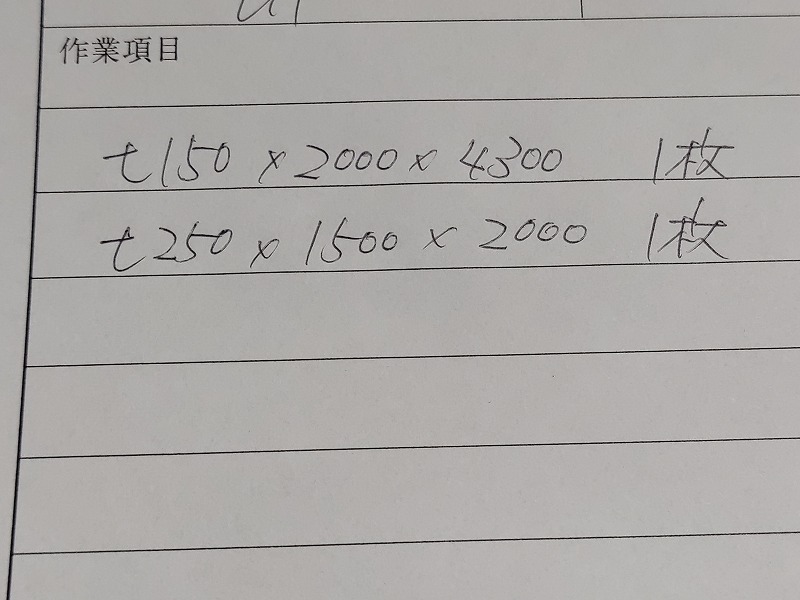 作業項目
t150 × 2000 × 4300 1枚
t250 × 1500 × 2000 1枚